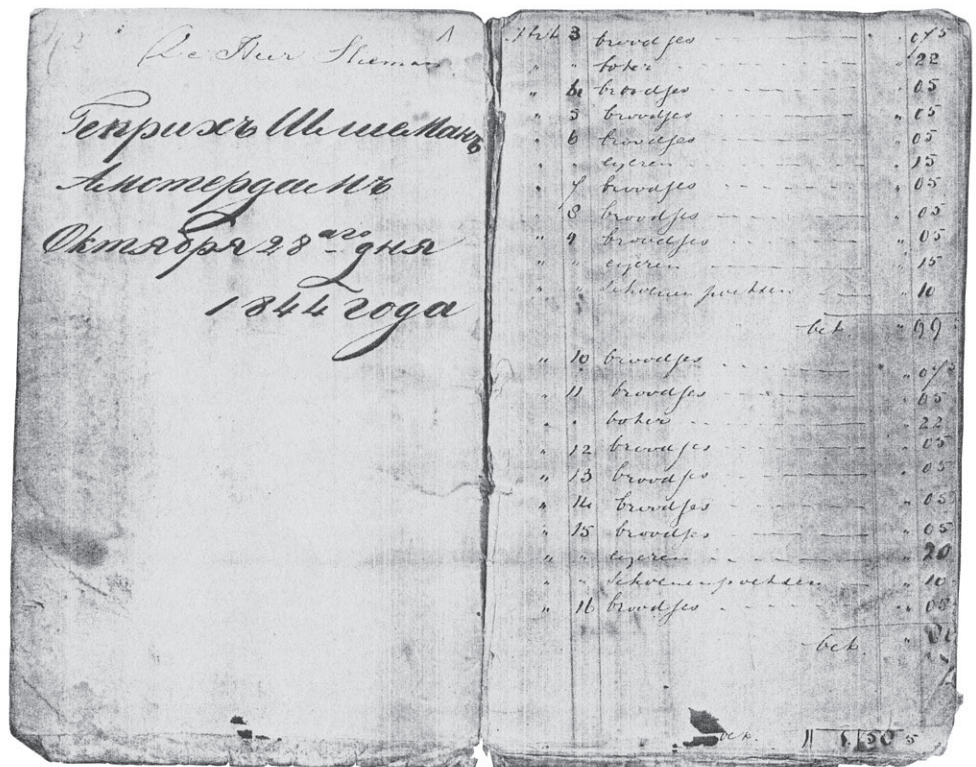 De Heer
Генрихъ Шлиеманъ
Амстердамъ
Октября 28 аго дня
1844 года
3 broodjes
" " boter " 22
" broodjes " 05
" 5 broodjes " 05
" 6 broodjes " 05
" " eyeren " 15
" 7 broodjes " 05
" 8 broodjes " 05
" 9 broodjes " 05
" " eyeren " 15
" " schoenenpoetsen " 10
" 99
" 10 broodjes
" 11 broodjes " 05
" " boter " 22
" 12 broodjes " 05
" 13 broodjes " 05
" 14 broodjes " 05
" 15 broodjes " 05
" " eyeren " 20
" " schoenenpoetsen " 10
" 16 broodjes " 05